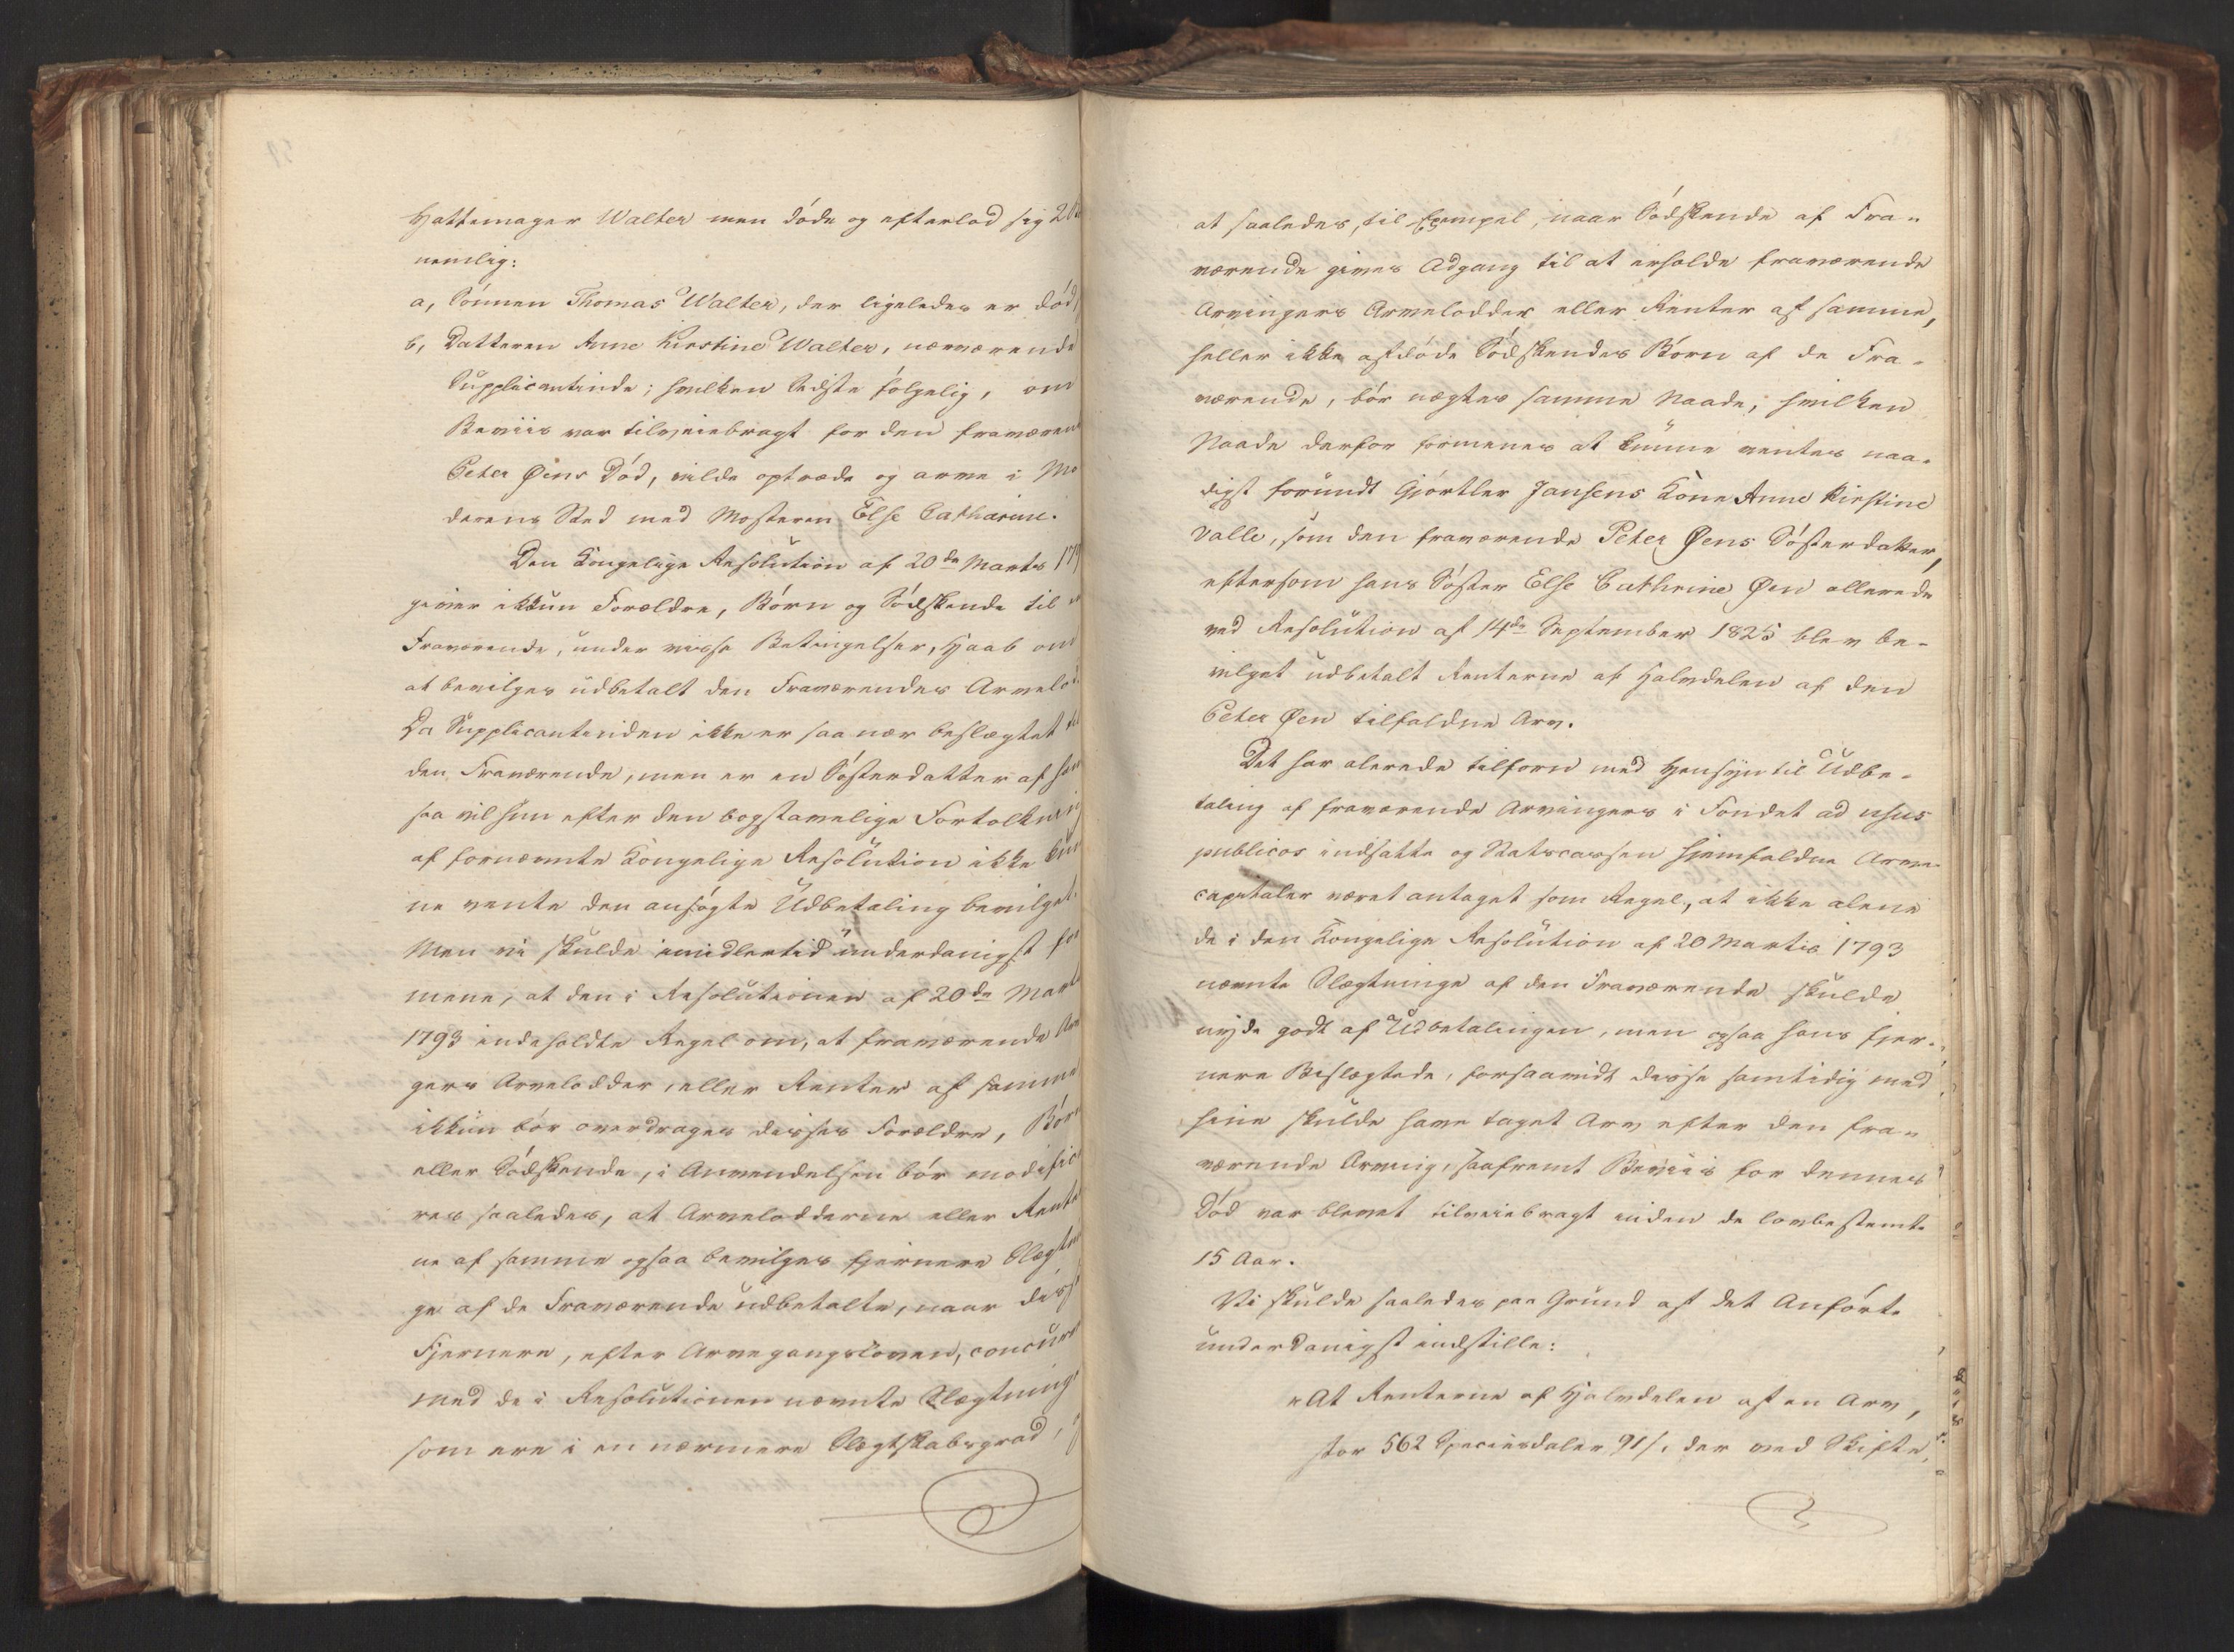 Hattemager Walter men döde og efterlod sig 2 B
nemlig:
a, Sönnen Thomas Walter, der ligeledes er död
b, Datteren Anne Kirstine Walter, nærværende
Supplicantinde; hvilken Sidste fölgelig, om
Beviis var tilveiebragt for den fraværen
Peter Øens Död, vilde optræde og arve i Mo
derens Sted med Mosteren Else Catharine.
Den Kongelige Resolution af 20de Martz 179
giver ikkun Forældre, Börn og Södskende til
Fraværende, under visse Betingelser, Haab om
at bevilges udbetalt den Fraværendes Arvelo
Da Supplicantinden ikke er saa nær beslægtet
den Fraværende, men er en Sösterdatter af ha
saa vil hun efter den bogstavelige Fortolkni
af fornævnte Kongelige Resolution ikke kun
ne vente den ansögte Udbetaling bevilget.
Men vi skulde imidlertid underdanigst for
mene, at den i Resolutionen af 20de Marts
1793 indeholdte Regel om, at fraværende Arv
gers Arvelodder, eller Renter af samme
ikkun bör overdrages disses Forældre, Börn
eller Södskende, i Anvendelsen bör modific
res saaledes, at Arvelodderne eller Rente
ne af samme ogsaa bevilges fjernere Slægtni
ge af de Fraværende udbetalte, naar diss
Fjernere, efter Arvegangsloven, concurr
med de i Resolutionen nævnte Slægtninge
som ere i en nærmere Slægtskabsgrad,
at saaledes, til Exempel, naar Södskende af Fra-
værende gives Adgang til at erholde fraværende
Arvingers Arvelodder eller Renter af samme,
heller ikke afdöde Södskendes Börn af de Fra-
værende, bör nægtes samme Naade, hvilken
Naade derfor formenes at kunne ventes naa-
digst forundt Gjörtler Jansens Kone Anne Kirstine
Valle, som den fraværende Peter Øens Sösterdatter,
eftersom hans Söster Else Cathrine Øen allerede
ved Resolution af 14de September 1825 blev be-
vilget udbetalt Renterne af Halvdelen af den
Peter Øen tilfaldne Arv.
Det har alerede tilforn med Hensyn til Udbe-
taling af fraværende Arvingers i Fondet ad usus
publicos indsatte og Statscassen hjemfaldne Arve-
capitaler været antaget som Regel, at ikke alene
de i den Kongelige Resolution af 20 Martis 1793
nævnte Slægtninge af den Fraværende skulde
nyde godt af Udbetalingen, men ogsaa hans fjer-
nere Beslægtede, forsaavidt disse samtidig med
hine skulde have taget Arv efter den fra-
værende Arving, saafremt Beviis for dennes
Död var blevet tilveiebragt inden de lovbestemte
15 Aar.
Vi skulde saaledes paa Grund af det Anförte
underdanigst indstille:
"At Renterne af Halvdelen af en Arv,
stor 562 Speciesdaler 91 s, der ved Skifte